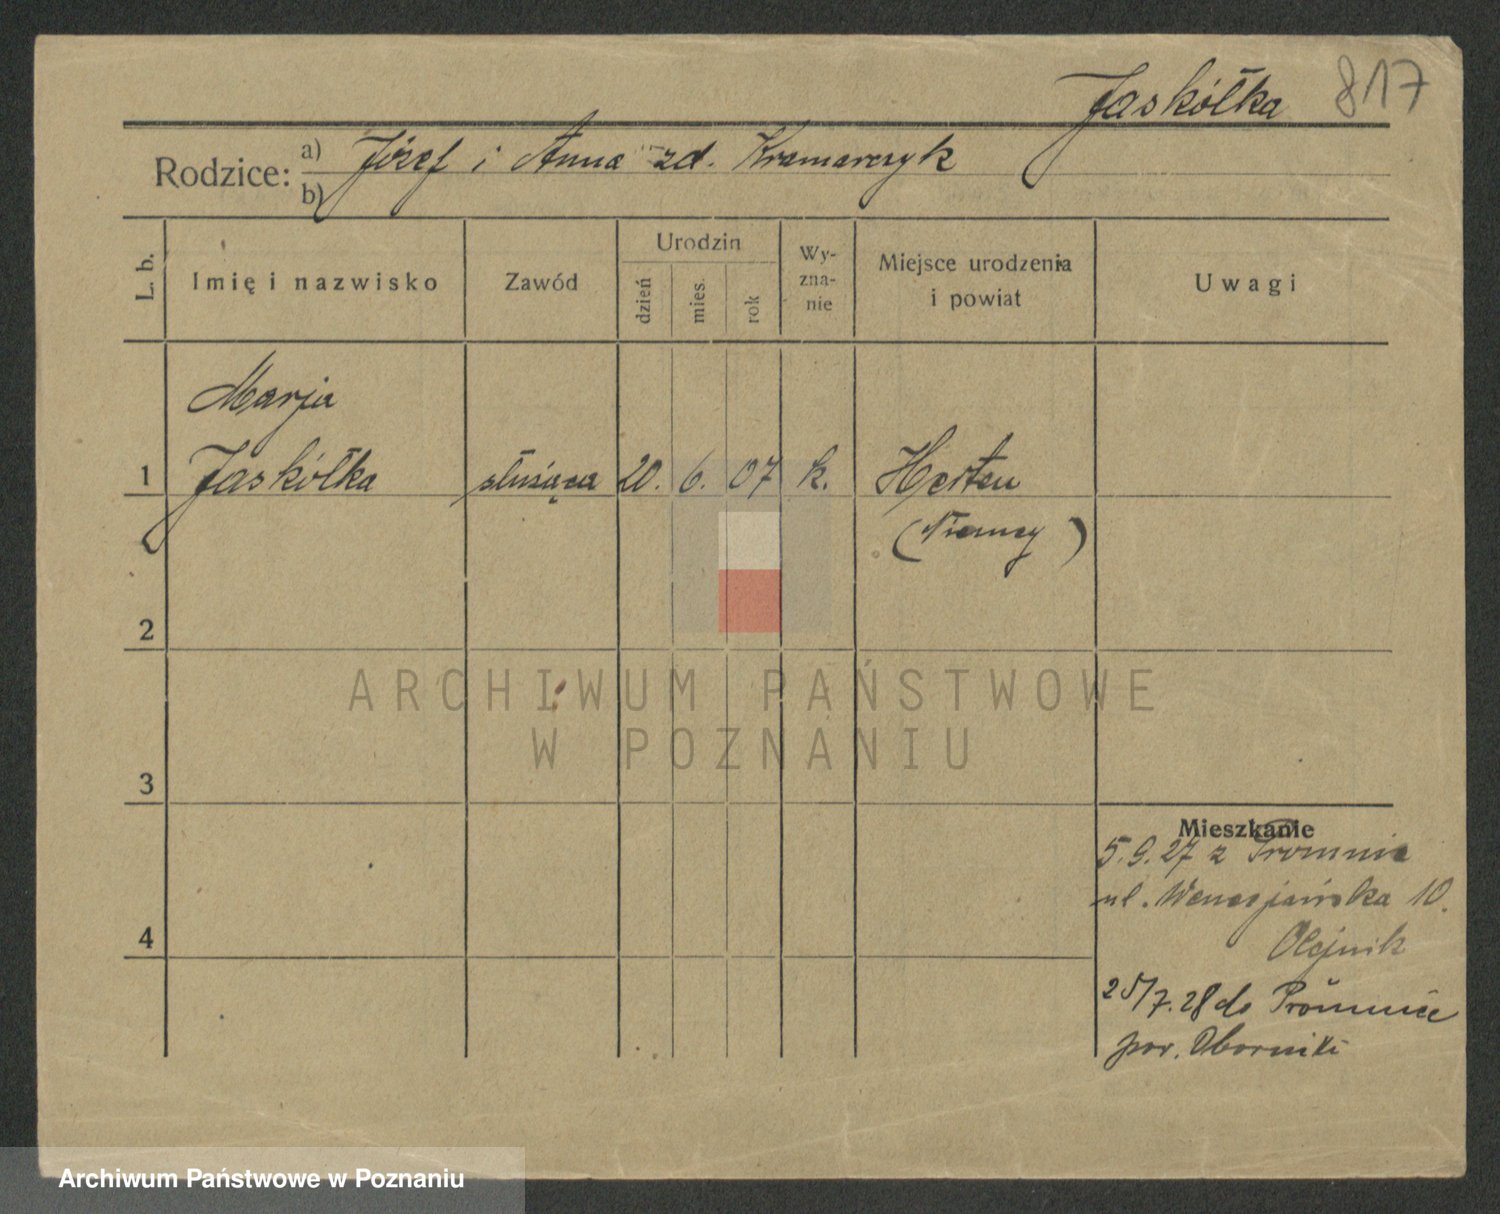 Jaskółka 817
Rodzice: a) Józef i Anna zd. Kramarczyk
b)
L. b. Imię i nazwisko Zawód Urodzin dzień mies. rok Wy-zna-nie Miejsce urodzenia i powiat Uwagi
Marja
1 Jaskółka służąca 20. 6. 07 k. Herten
(Niemcy)
2
ARCHIWUM PAŃSTWOWE
W POZNANIU
3
Mieszkanie
5.9.27 z Promnic
ul. Wenecjańska 10.
4 Olejnik
25/7.28 do Promnic
pow. Oborniki
Archiwum Państwowe w Poznaniu